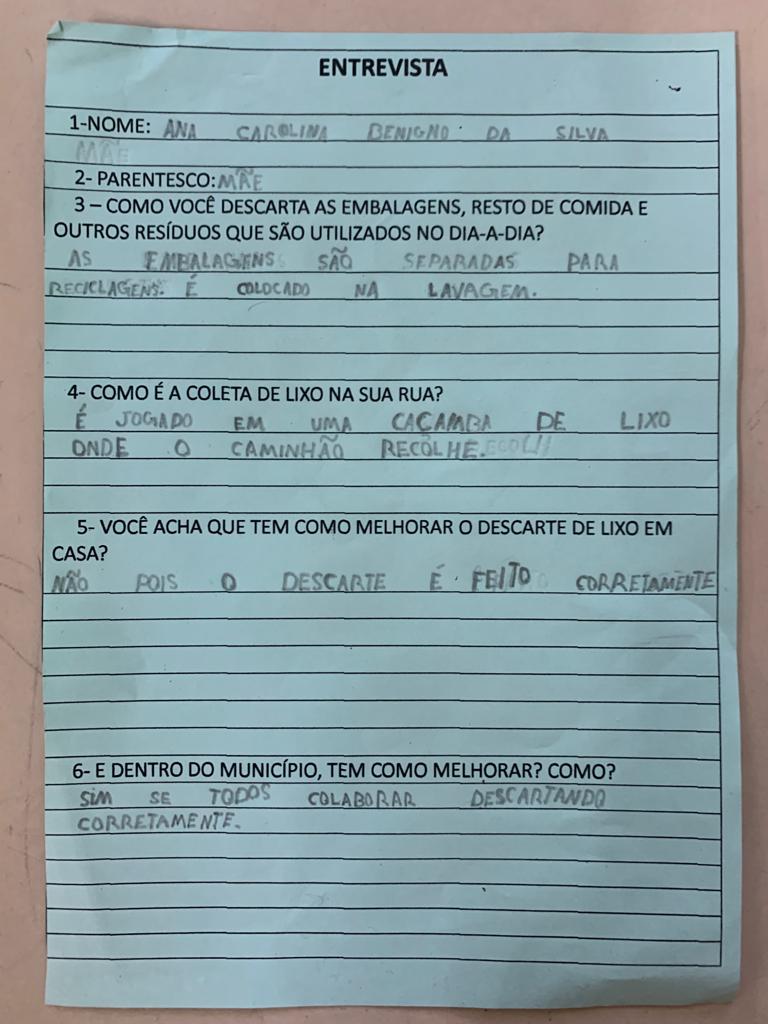 ENTREVISTA
1-NOME: ANA CAROLINA BENIGNO DA SILVA
MÃE
2- PARENTESCO: MÃE
3 – COMO VOCÊ DESCARTA AS EMBALAGENS, RESTO DE COMIDA E
OUTROS RESÍDUOS QUE SÃO UTILIZADOS NO DIA-A-DIA?
AS EMBALAGENS SÃO SEPARADAS PARA
RECICLAGENS. É COLOCADO NA LAVAGEM.
4- COMO É A COLETA DE LIXO NA SUA RUA?
É JOGADO EM UMA CAÇAMBA DE LIXO
ONDE O CAMINHÃO RECOLHE.
5- VOCÊ ACHA QUE TEM COMO MELHORAR O DESCARTE DE LIXO EM
CASA?
NÃO POIS O DESCARTE É FEITO CORRETAMENTE
6- E DENTRO DO MUNICÍPIO, TEM COMO MELHORAR? COMO?
SIM SE TODOS COLABORAR DESCARTANDO
CORRETAMENTE.